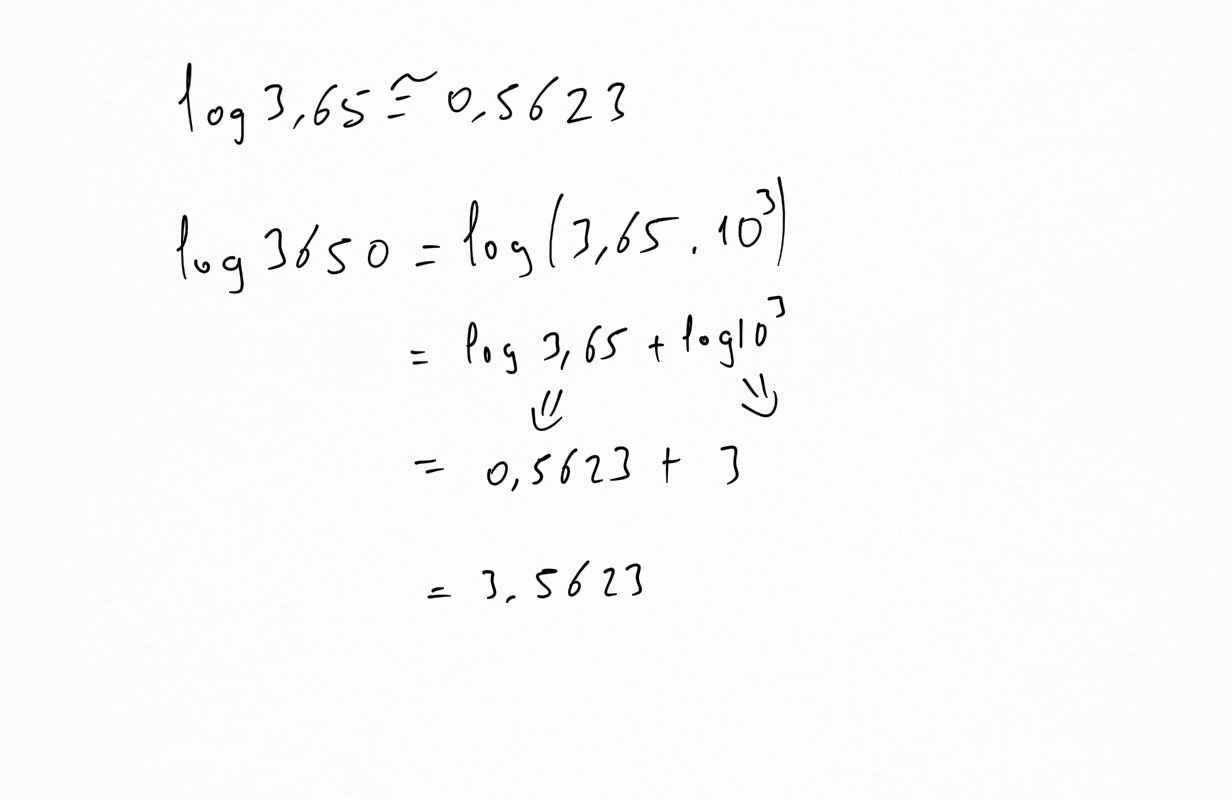 log 3,65 ≅ 0,5623
log 3650 = log(3,65 . 10³)
= log 3,65 + log10³
⇓ ⇓
= 0,5623 + 3
= 3,5623